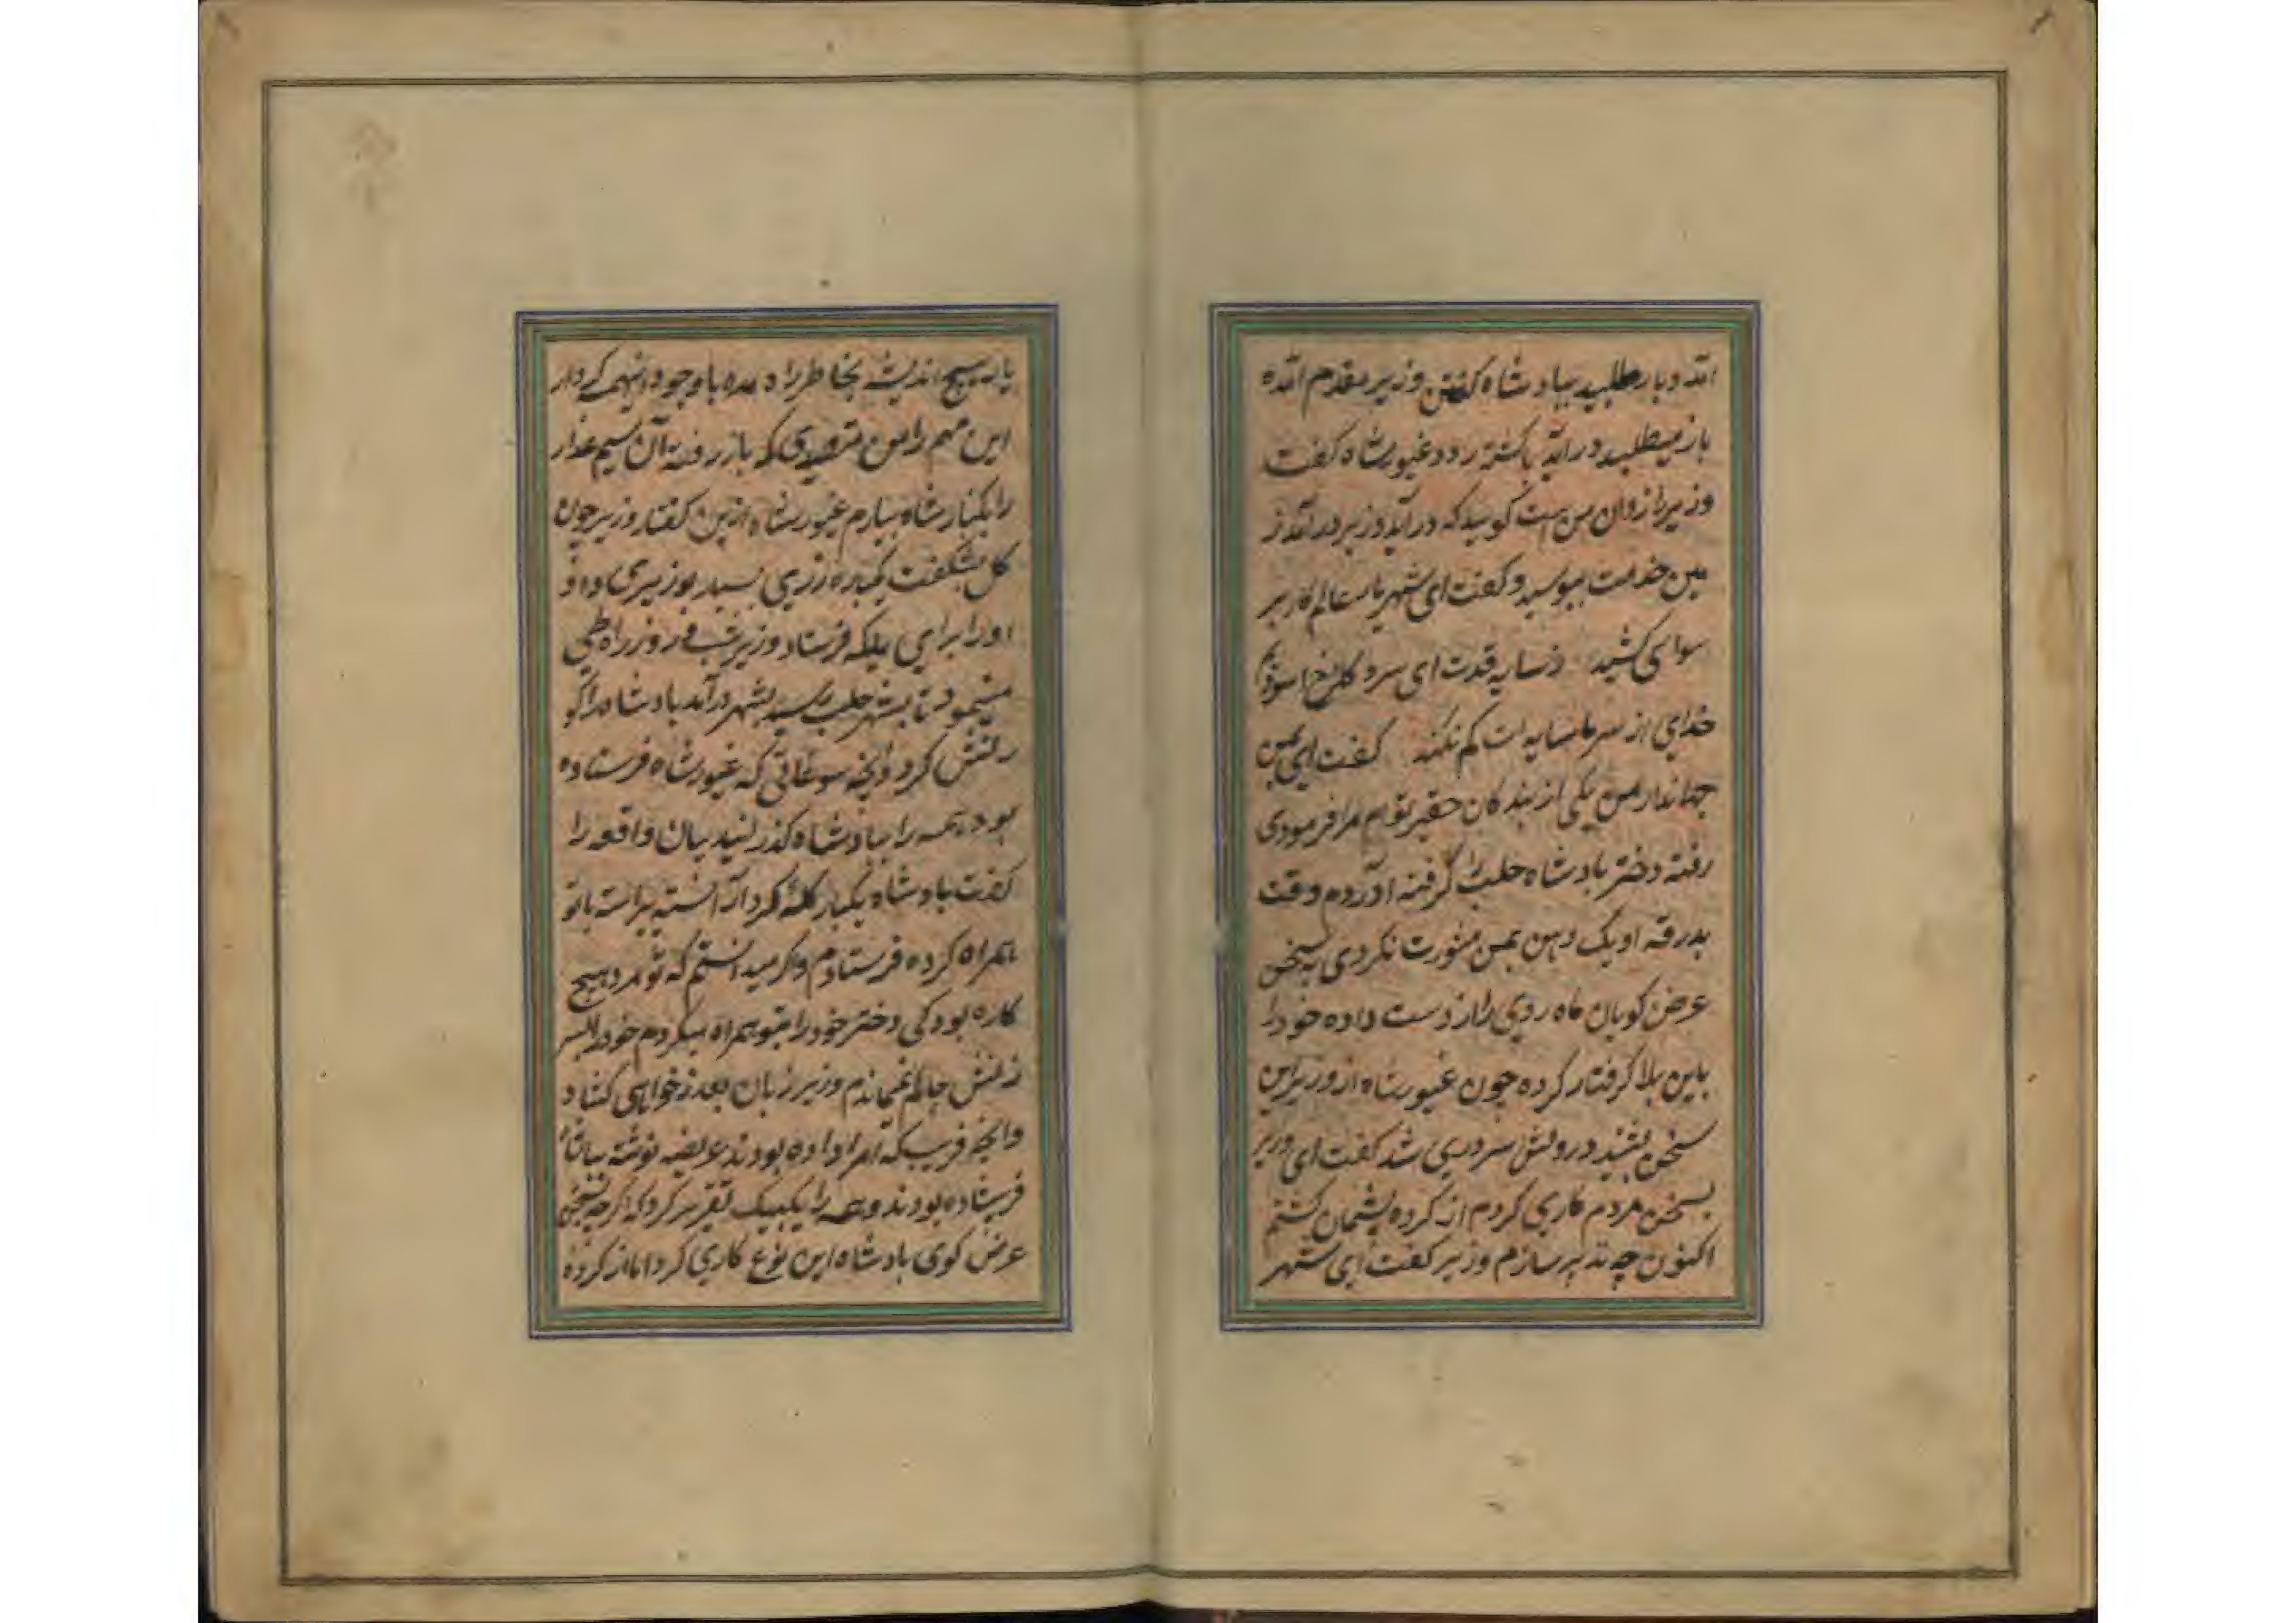 آمد و بار طلبید بپادشاه گفتن وزیر مقدم آمده
باز میطلبد در آید یا کشته رود غیورشاه گفت
وزیر نازدان من است گویید که در آید وزیر در آمد ز
مین خدمت ببوسید و گفت ای شهریار عالم کار بر
سوای کشید ز سایه قدت ای سرو گلرخ
خدای از سر ما سایه ات کم نکند گفت ای
جهاندار من یکی از بندگان حقیر توام مرا فرمودی
رفته دختر بادشاه حلب را گرفته آورده وقت
بدرقه او یک ذهن بمن مشورت نکردی به سخن
عرض کویان ماه روی را از دست داده خود را
باین بلا گرفتار کرده چون غیورشاه از وزیر این
سخن بشنید درونش سر دریی شد گفت ای وزیر
بسخن مردم کاری کردم از کرده پشیمان گشتم
اکنون چه تدبیر سازم وزیر گفت ای شهر
یار هیچ اندیشه بخاطر راه مده با وجود اینهمه کردار
این مهم را من که باز رفته آن سیم عذار
را بکنار شاه بیارم غیورشاه ازین گفتار وزیر چون
گل بشگفت یکباره زری بسیار بوزیری داد و
او را برای ملکه فرستاد وزیر شب و روز راه طی
مینمود تا بشهر حلب رسید بشهر درآمد بادشاه را کو
رنش کرد و آنچه سوغاتی که غیورشاه فرستاده
بود همه را ببادشاه گذرانید بیان واقعه را
گفت بادشاه یکبار گله کرد آراسته پیراسته باتو
همراه کرده فرستادم و اگر میدانستم که تو مرد هیچ
کاره بود کی دختر خود را بتو همراه میکردم خود را بسر
زنش وزیر زبان بعذر خواهی کشاد
و آنچه فریب که امرا داده بودند عریضه نوشته
فرستاده بودند و همه را یکبیک تقریر کرد که اگر چه بسخن
عرض کوی بادشاه این نوع کاری کرد اما از کرده